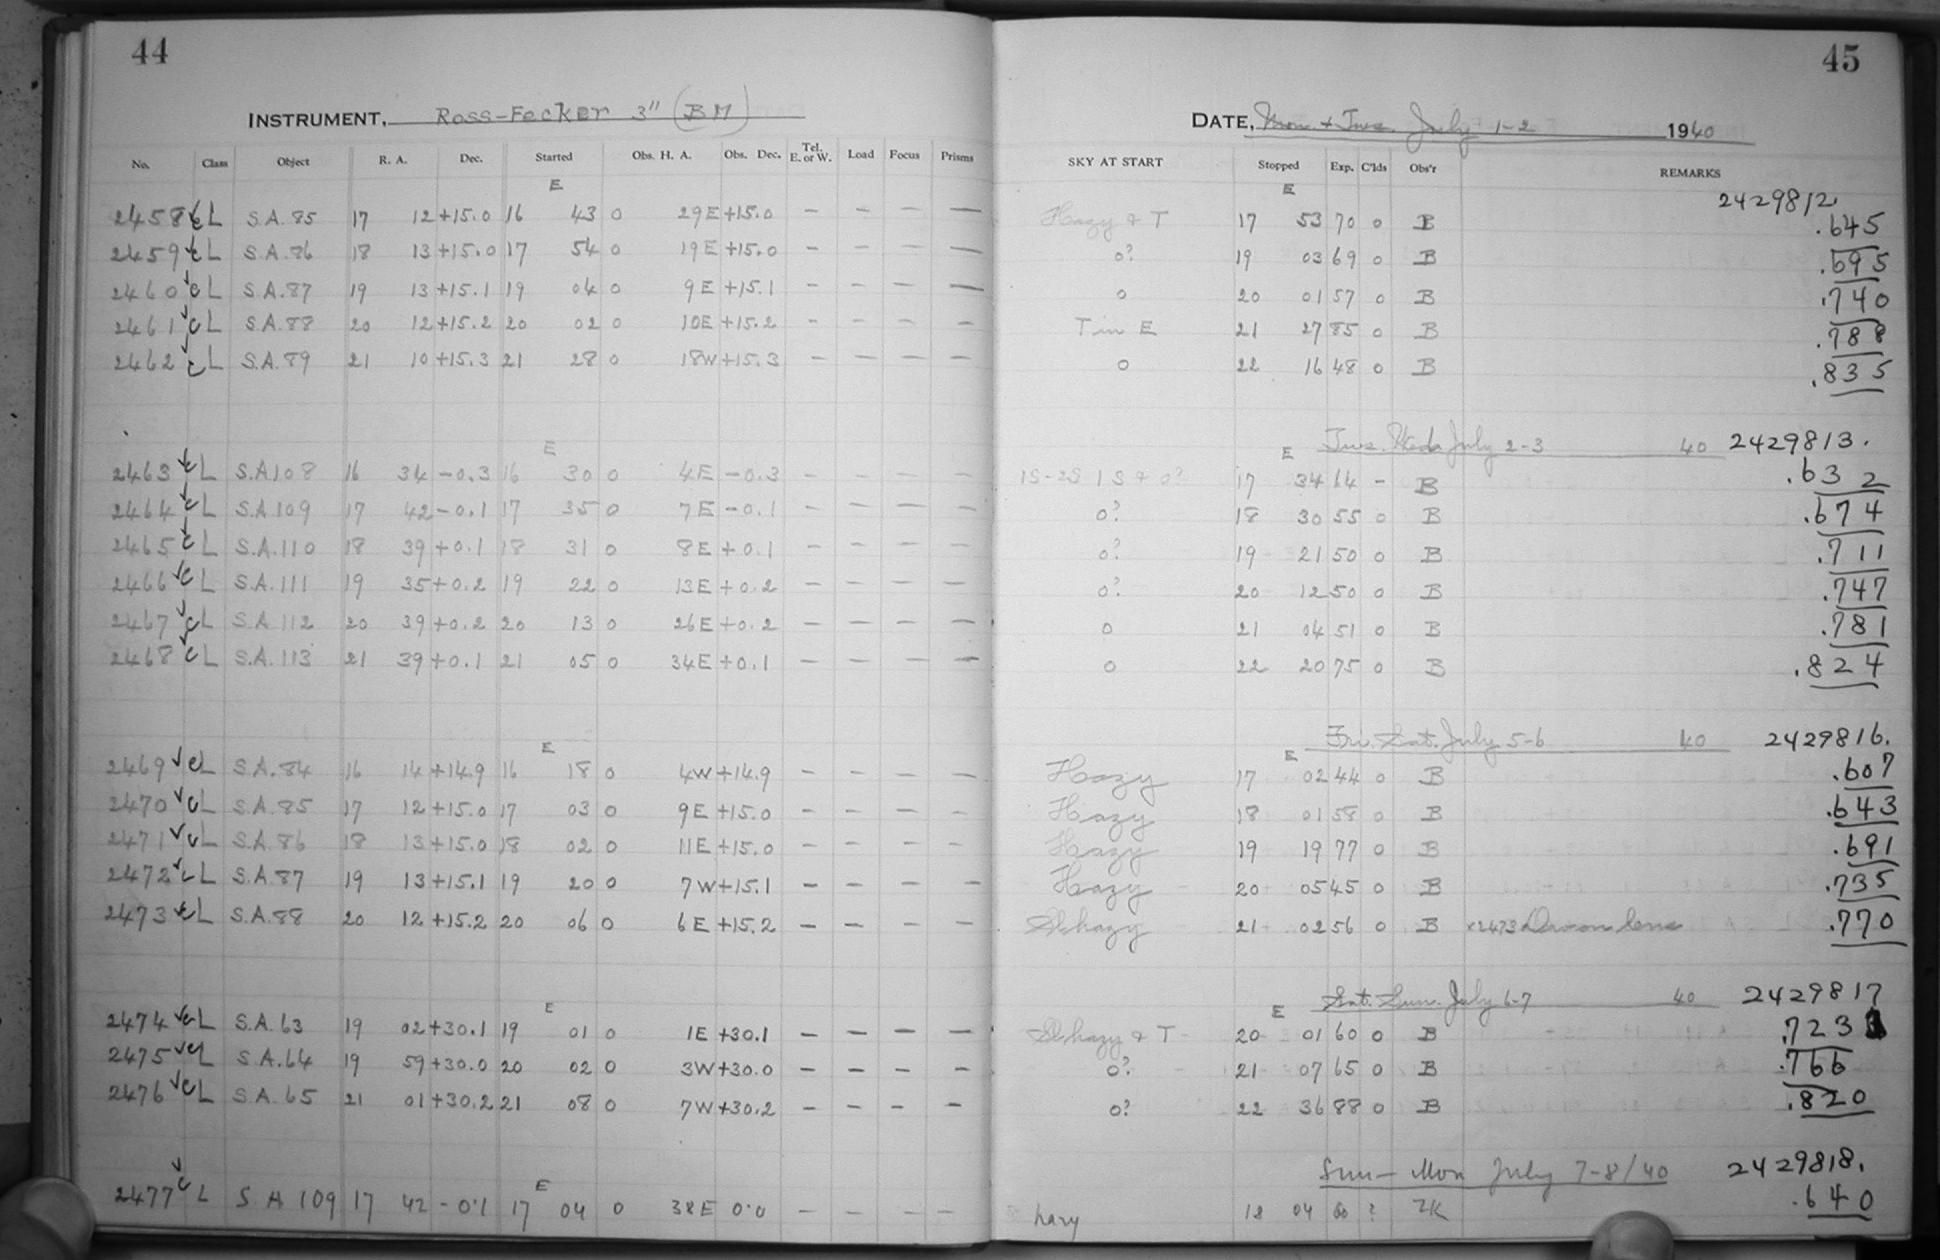 44
45
INSTRUMENT, Ross-Fecker 3" (BM)
DATE, Mon. + Tues. July 1-2 1940
No. Class Object R. A. Dec. Started Obs. H. A. Obs. Dec. Tel. E. or W. Load Focus Prisms SKY AT START Stopped Exp. C'lds Obs'r REMARKS
E E 2429812.
2458 ✓c L S.A.85 17 12 +15.0 16 43 0 29E +15.0 — — — — Hazy & T 17 53 70 0 B .645
2459 ✓c L S.A.86 18 13 +15.0 17 54 0 19E +15.0 — — — — 0? 19 03 69 0 B .695
2460 ✓c L S.A.87 19 13 +15.1 19 04 0 9E +15.1 — — — — 0 20 01 57 0 B .740
2461 ✓c L S.A.88 20 12 +15.2 20 02 0 10E +15.2 — — — — T in E 21 27 85 0 B .788
2462 ✓c L S.A.89 21 10 +15.3 21 28 0 18W +15.3 — — — — 0 22 16 48 0 B .835
E E Tues. Wed. July 2-3 40 2429813.
2463 ✓c L S.A.108 16 34 -0.3 16 30 0 4E -0.3 — — — — 17 34 64 - B .632
2464 ✓c L S.A.109 17 42 -0.1 17 35 0 7E -0.1 — — — — 0? 18 30 55 0 B .674
2465 ✓c L S.A.110 18 39 +0.1 18 31 0 8E +0.1 — — — — 0? 19 21 50 0 B .711
2466 ✓c L S.A.111 19 35 +0.2 19 22 0 13E +0.2 — — — — 0? 20 12 50 0 B .747
2467 ✓c L S.A.112 20 39 +0.2 20 13 0 26E +0.2 — — — — 0 21 04 51 0 B .781
2468 ✓c L S.A.113 21 39 +0.1 21 05 0 34E +0.1 — — — — 0 22 20 75 0 B .824
E E Fri. Sat. July 5-6 40 2429816.
2469 ✓c L S.A.84 16 14 +14.9 16 18 0 4W +14.9 — — — — Hazy 17 02 44 0 B .607
2470 ✓c L S.A.85 17 12 +15.0 17 03 0 9E +15.0 — — — — Hazy 18 01 58 0 B .643
2471 ✓c L S.A.86 18 13 +15.0 18 02 0 11E +15.0 — — — — Hazy 19 19 77 0 B .691
2472 ✓c L S.A.87 19 13 +15.1 19 20 0 7W +15.1 — — — — Hazy 20 05 45 0 B .735
2473 ✓c L S.A.88 20 12 +15.2 20 06 0 6E +15.2 — — — — Sl hazy 21 02 56 0 B x2473 lens .770
E E Sat. Sun. July 6-7 40 2429817
2474 ✓c L S.A.63 19 02 +30.1 19 01 0 1E +30.1 — — — — Sl hazy & T 20 01 60 0 B .723
2475 ✓c L S.A.64 19 59 +30.0 20 02 0 3W +30.0 — — — — 0? 21 07 65 0 B .766
2476 ✓c L S.A.65 21 01 +30.2 21 08 0 7W +30.2 — — — — 0? 22 36 88 0 B .820
E Sun - Mon July 7-8/40 2429818.
2477 ✓c L S A 109 17 42 -0.1 17 04 0 38E 0.0 — — — — hazy 18 04 60 ? .640